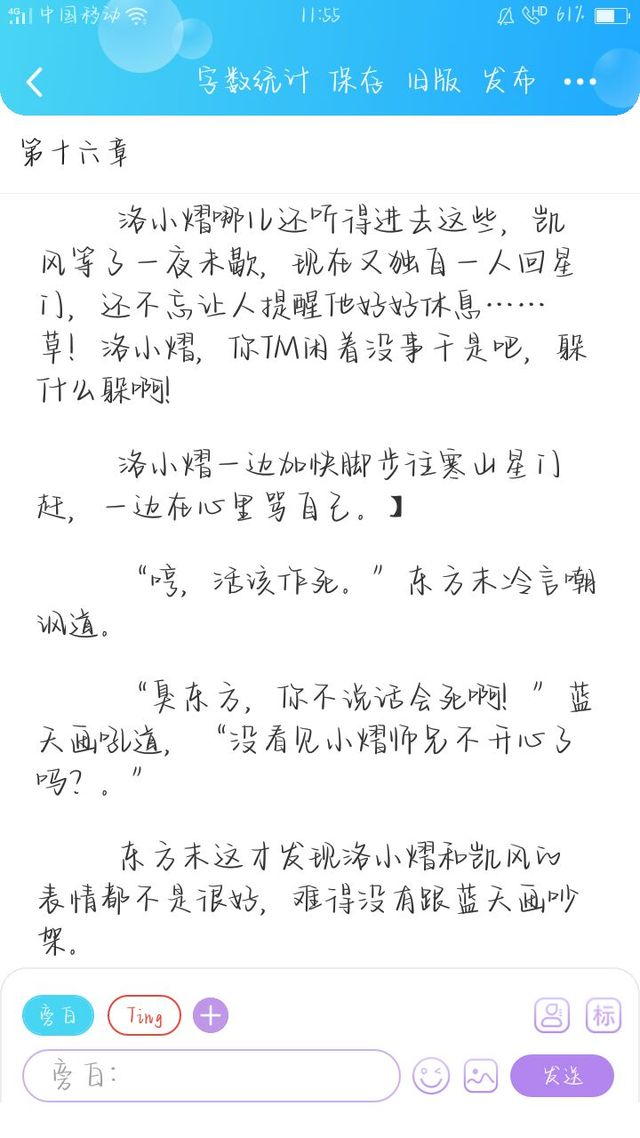 4G 中国移动 11:55 HD 61%
字数统计 保存 旧版 发布
第十六章
洛小熠哪儿还听得进去这些，凯
风等了一夜未歇，现在又独自一人回星
门，还不忘让人提醒他好好休息……
草！洛小熠，你TM闲着没事干是吧，躲
什么躲啊！
洛小熠一边加快脚步往寒山星门
赶，一边在心里骂自己。】
“哼，活该作死。”东方末冷言嘲
讽道。
“臭东方，你不说话会死啊！”蓝
天画吼道，“没看见小熠师兄不开心了
吗？。”
东方末这才发现洛小熠和凯风的
表情都不是很好，难得没有跟蓝天画吵
架。
旁白 Ting
标
旁白：
发送